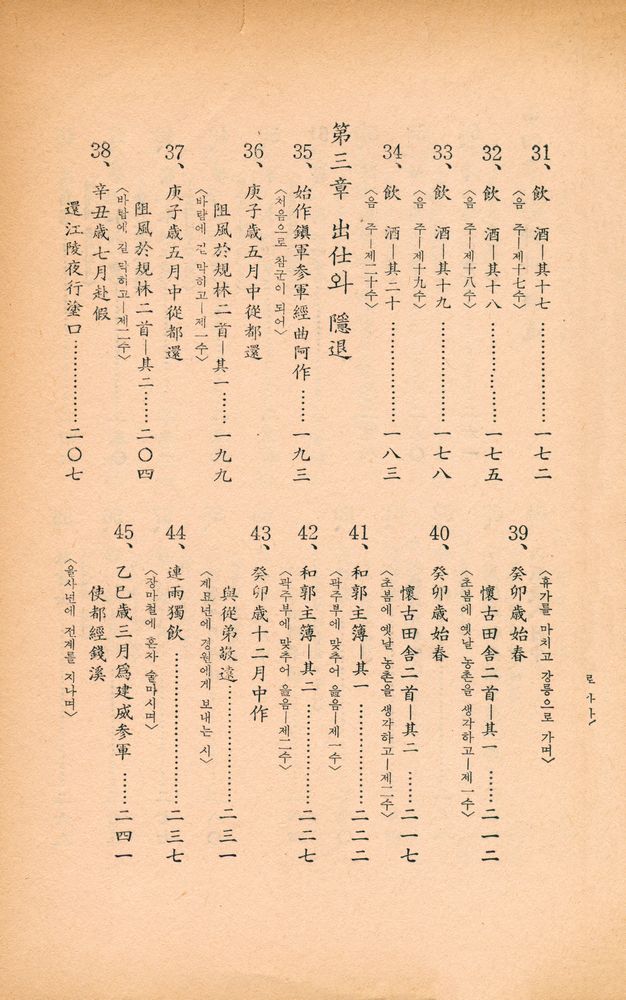 31、飮 酒—其十七 ………… 一七二
〈음 주—제十七수〉
32、飮 酒—其十八 ………… 一七五
〈음 주—제十八수〉
33、飮 酒—其十九 ………… 一七八
〈음 주—제十九수〉
34、飮 酒—其二十 ………… 一八三
〈음 주—제二十수〉
第三章 出仕와 隱退
35、始作鎭軍参軍經曲阿作 …… 一九三
〈처음으로 참군이 되어〉
36、庚子歳五月中從都還
阻風於規林二首—其一 …… 一九九
〈바람에 길 막히고—제一수〉
37、庚子歳五月中從都還
阻風於規林二首—其二 …… 二〇四
〈바람에 길 막히고—제二수〉
38、辛丑歳七月赴假
還江陵夜行塗口 ………… 二〇七
〈휴가를 마치고 강릉으로 가며〉
39、癸卯歳始春
懷古田舎二首—其一 …… 二一二
〈초봄에 옛날 농촌을 생각하고—제一수〉
40、癸卯歳始春
懷古田舎二首—其二 …… 二一七
〈초봄에 옛날 농촌을 생각하고—제二수〉
41、和郭主簿—其一 ………… 二二二
〈곽주부에 맞추어 읊음—제一수〉
42、和郭主簿—其二 ………… 二二七
〈곽주부에 맞추어 읊음—제二수〉
43、癸卯歳十二月中作
與從弟敬遠 ………… 二三一
〈계묘년에 경원에게 보내는 시〉
44、連雨獨飮 ………… 二三七
〈장마철에 혼자 술마시며〉
45、乙巳歳三月爲建威参軍
使都經錢溪 …… 二四一
〈을사년에 전계를 지나며〉